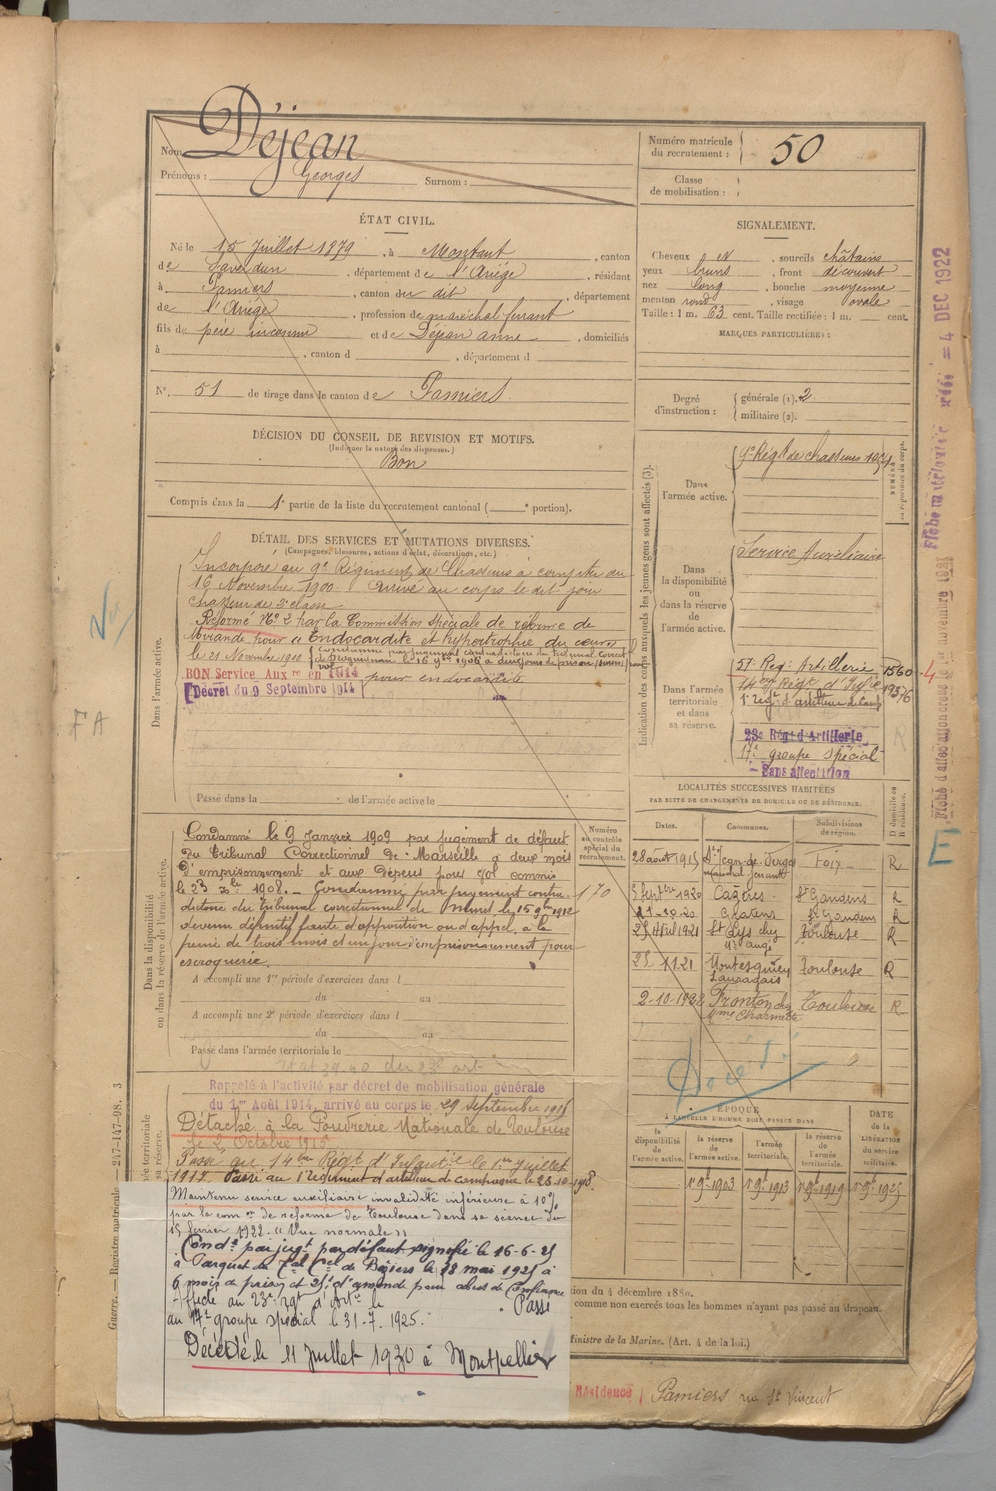 Nom Déjean
Prénoms : Georges Surnom :
ÉTAT CIVIL.
Né le 15 Juillet 1879, à Montaut, canton
de Saverdun, département de l'Ariège, résidant
à Pamiers, canton du dit, département
de l'Ariège, profession de maréchal ferrant
fils de père inconnu et de Déjean anne, domiciliés
à , canton d , département d
N° 51 de tirage dans le canton de Pamiers
DÉCISION DU CONSEIL DE REVISION ET MOTIFS.
(Indiquer la nature des dispenses.)
Bon
Compris dans la 1e partie de la liste du recrutement cantonal ( e portion).
DÉTAIL DES SERVICES ET MUTATIONS DIVERSES.
(Campagnes, blessures, actions d'éclat, décorations, etc.)
Dans l'armée active.
Incorporé au 9e Régiment de Chasseurs à compter du
16 Novembre 1900. Arrivé au corps le dit jour
chasseur de 2e classe
Réformé No 2 par la Commission spéciale de réforme de
Mirande pour "Endocardite et hypertrophie du cœur"
le 21 Novembre 1910
Condamné par jugement contradictoire du tribunal correct
de le 16 9bre 1906 à deux jours de prison
vol
BON Service Aux re en 1914
Décret du 9 Septembre 1914
pour endocardite
Passé dans la de l'armée active le
Dans la disponibilité
ou dans la réserve de l'armée active.
Condamné le 9 Janvier 1909 par jugement de défaut
du Tribunal Correctionnel de Marseille à deux mois
d'emprisonnement et aux dépens pour vol commis
le 23 Xbre 1908. — Condamné par jugement contra-
dictoire du Tribunal correctionnel de Muret le 15 9bre 1912
devenu définitif faute d'opposition ou d'appel, à la
peine de trois mois et un jour d'emprisonnement pour
escroquerie.
Numéro
au contrôle
spécial du
recrutement.
170
A accompli une 1re période d'exercices dans l
du au
A accompli une 2e période d'exercices dans l
du au
Passé dans l'armée territoriale le
Rappelé à l'activité par décret de mobilisation générale
du 1er Août 1914, arrivé au corps le 29 septembre 1915
Détaché à la Poudrerie Nationale de Toulouse
le 2 Octobre 1915
Passé au 14ème Régt d'Infantie le 1er Juillet
1917. Passé au 1er régiment d'artillerie de campagne le 23-10-1918.
Maintenu service auxiliaire invalidité inférieure à 10%
par la com on de réforme de Toulouse dans sa séance du
15 février 1922. "Vue normale"
Condé par jugt par défaut signifié le 16-6-25
à Parquet du Tal Cel de Béziers le 28 mai 1925 à
6 mois de prison et 25f d'amende pour abus de Confiance
Affecté au 23e rgt d'artie le Passé
au 17e groupe spécial le 31-7-1925.
Décédé le 11 Juillet 1930 à Montpellier
Numéro matricule
du recrutement : 50
Classe
de mobilisation :
SIGNALEMENT.
Cheveux N , sourcils châtains
yeux bruns , front découvert
nez long , bouche moyenne
menton rond , visage ovale
Taille : 1 m. 63 cent. Taille rectifiée : 1 m. cent.
MARQUES PARTICULIÈRES :
Degré
d'instruction :
générale (1). 2
militaire (2).
Indication des corps auxquels les jeunes gens sont affectés (3).
Dans
l'armée active.
9e Régt de chasseurs
Dans
la disponibilité
ou
dans la réserve
de
l'armée active.
Service Auxiliaire
Dans l'armée
territoriale
et dans
sa réserve.
57e Reg: Artillerie 1560
14e Régt d'Infie 19376
1er régt d'artillerie de camp
23e Régt d'Artillerie
17e groupe spécial
Sans affectation
LOCALITÉS SUCCESSIVES HABITÉES
PAR SUITE DE CHANGEMENTS DE DOMICILE OU DE RÉSIDENCE.
Dates. Communes. Subdivisions
de région. D domicile ou
R résidence.
28 août 1915 St Jean de Verges Foix R
maréchal ferrant
5 Septbre 1920 Cazères St Gaudens R
11-20 St Gaudens R
25 Avril 1921 St Lys chez Toulouse R
25 11.21 Montesquieu Toulouse R
Lauragais
2-10-1922 Fronton chez Toulouse R
Mme Charmette
Décédé
ÉPOQUE
À LAQUELLE L'HOMME DOIT PASSER DANS
la
disponibilité
de
l'armée active. la
réserve
de
l'armée active. l'armée
territoriale. la
réserve
de
l'armée
territoriale. DATE
de la
LIBÉRATION
du service
militaire.
1er 9bre 1903 1er 9bre 1913 1er 9bre 1919 1er 9bre 1925
ion du 4 décembre 1889.
comme non exercés tous les hommes n'ayant pas passé au drapeau.
Ministre de la Marine. (Art. 4 de la loi.)
Résidence Pamiers rue St Vincent
Guerre. — Registre matricule. — 247-147-98. 3
Vu
FA
E
4 DEC 1922